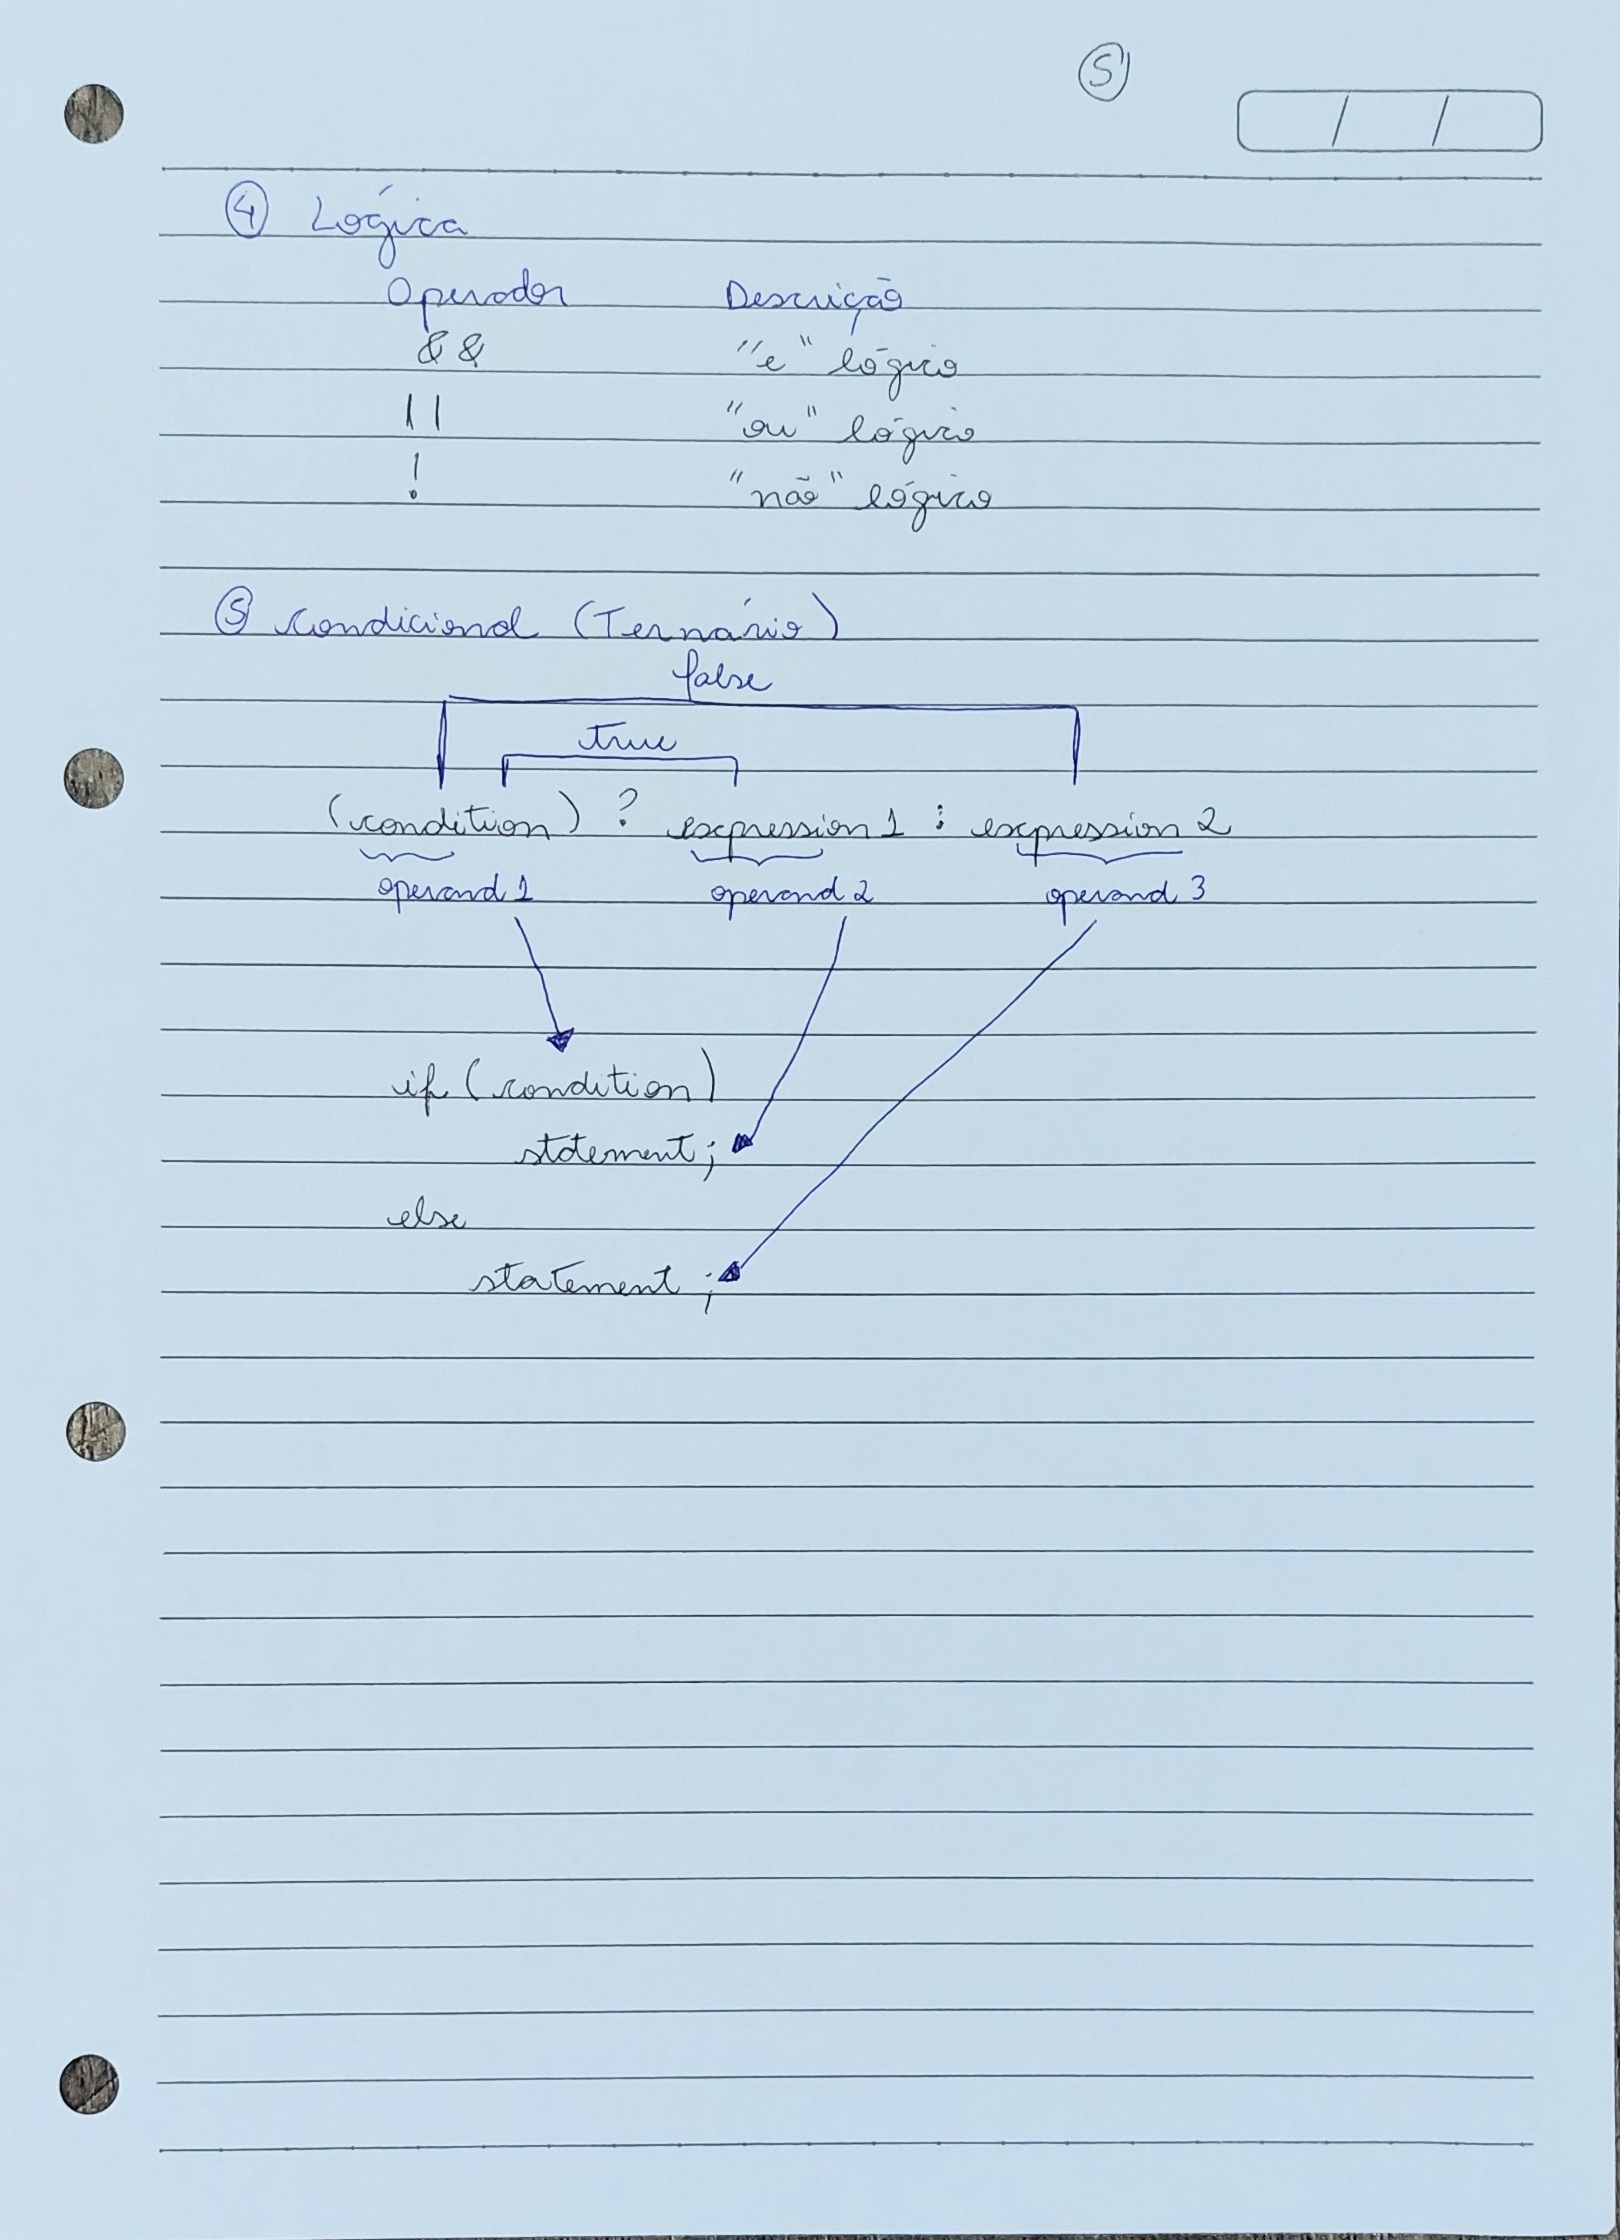 5
/ /
4 Lógica
Operador Descrição
&& "e" lógico
|| "ou" lógico
! "não" lógico
5 Condicional (Ternário)
false
true
(condition) ? expression 1 : expression 2
operand 1 operand 2 operand 3
if (condition)
statement;
else
statement;